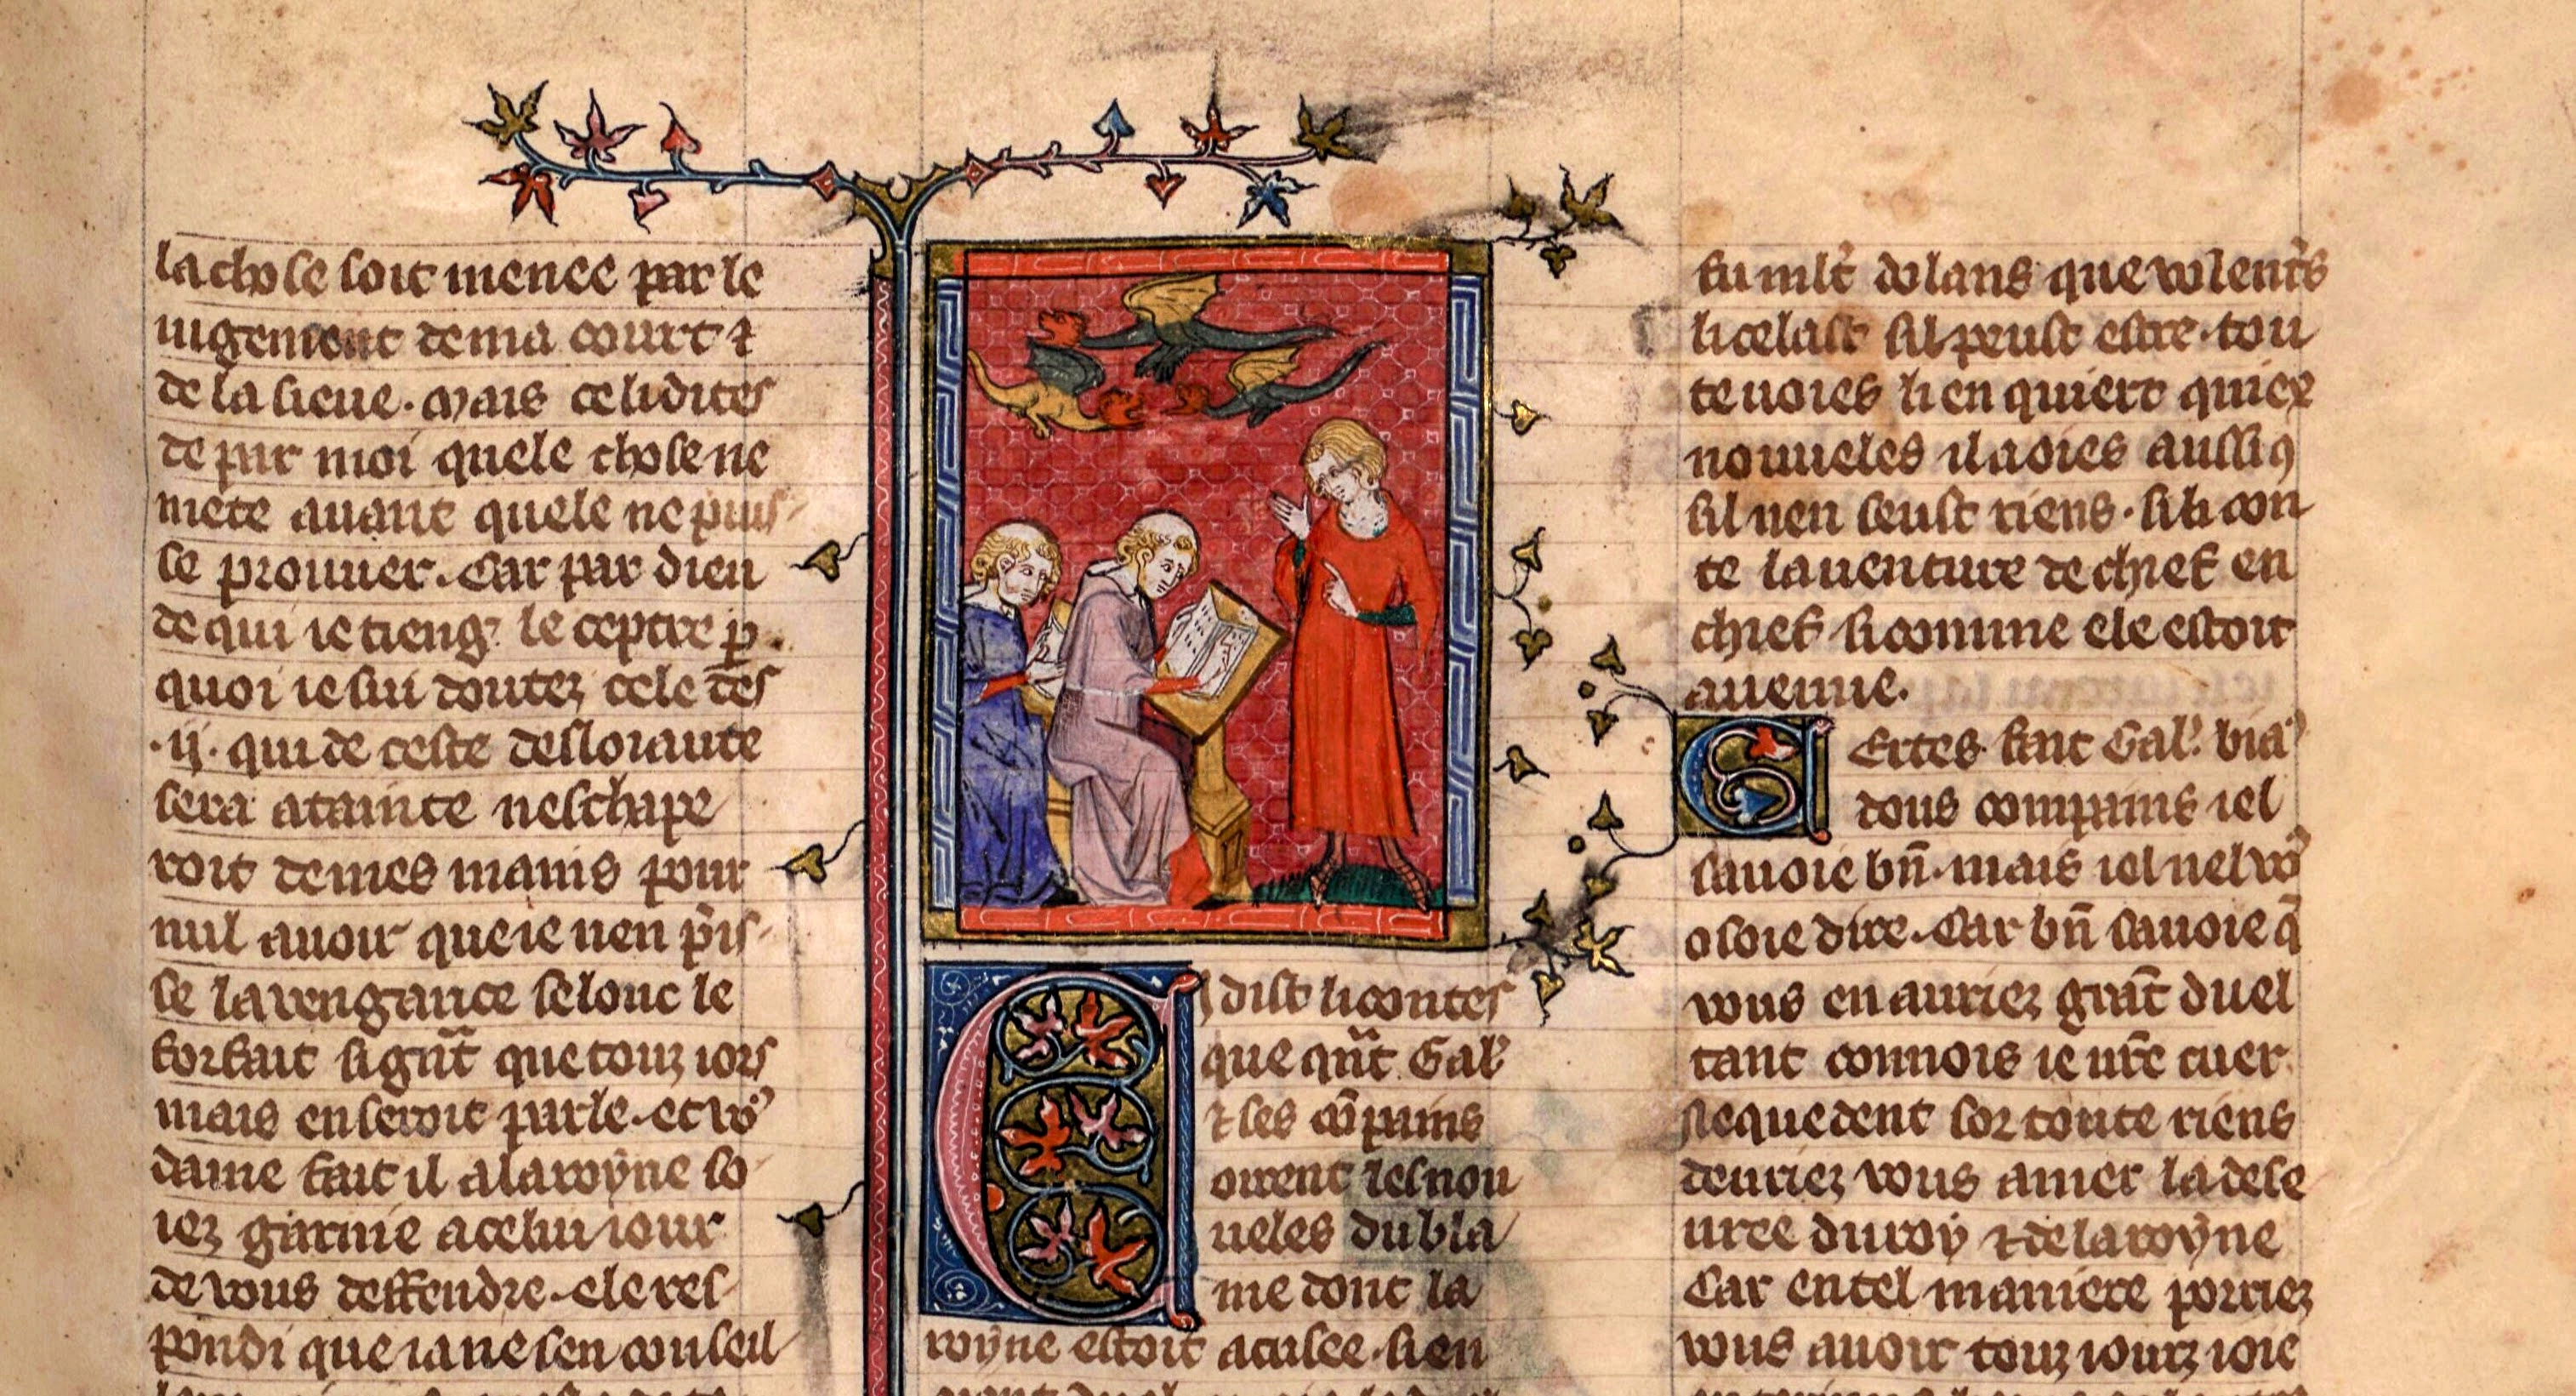 la chose soit menee par le
iugement de ma court ⁊
de la sieue. Mais ce li dites
de par moi quele chose ne
mete auant quele ne puis-
se prouuer. Car par dieu
de qui ie tieng le ceptre p̱
quoi ie sui doutez cele des
.ij. qui de ceste desloiaute
sera atainte neschape
roit de mes mains pour
nul auoir que ie nen p̃is-
se la vengance selonc le
forfait si gñt que touz iors
mais en seroit parle. et vꝰ
dame fait il a la royne so-
iez garnie a celui iour
de vous deffendre. ele res-
pondi que ia ne sen conseil
C i dist li contes
que qñt Gal'
⁊ ses cõpains
oirent les nou
ueles du bla-
me dont la
royne estoit acusee. si en
fu mlt' dolans que volent's
li celast sil peust estre. tou
teuoies li en quiert quiex
nouueles il a oies aussi ꝯ
sil nen seust riens. si li con
te lauenture de chief en
chief si comme ele estoit
auenue.
Certes fait Gal' biaꝰ
dous compains iel
sauoie bñ. mais iel nel vꝰ
osoie dire. Car bñ sauoie q̃
vous en auriez gñt duel
tant connois ie ur̃e cuer
Nequedent sor toute riens
deuriez vous amer la dese
uree du roy ⁊ de la royne
Car en tel maniere porriez
vous auoir touz iourz ioie